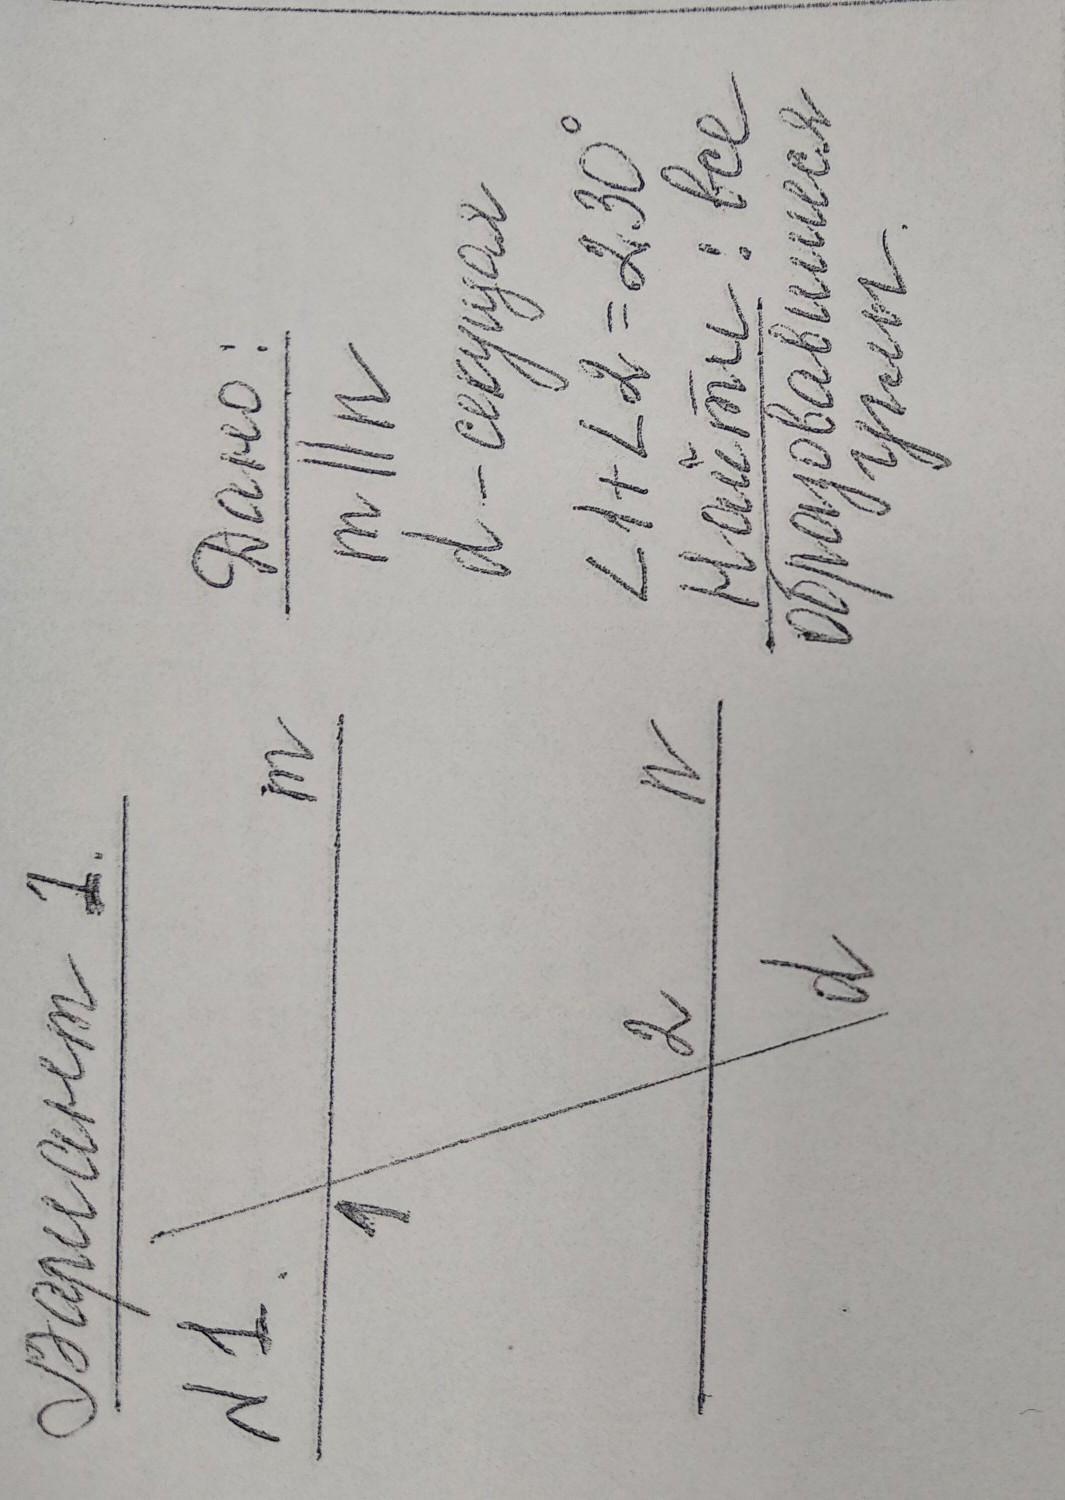 Вариант 1.
N 1.
m
1
2
n
d
Дано:
m || n
d - секущая
∠1 + ∠2 = 230°
Найти: все
образовавшиеся
углы.